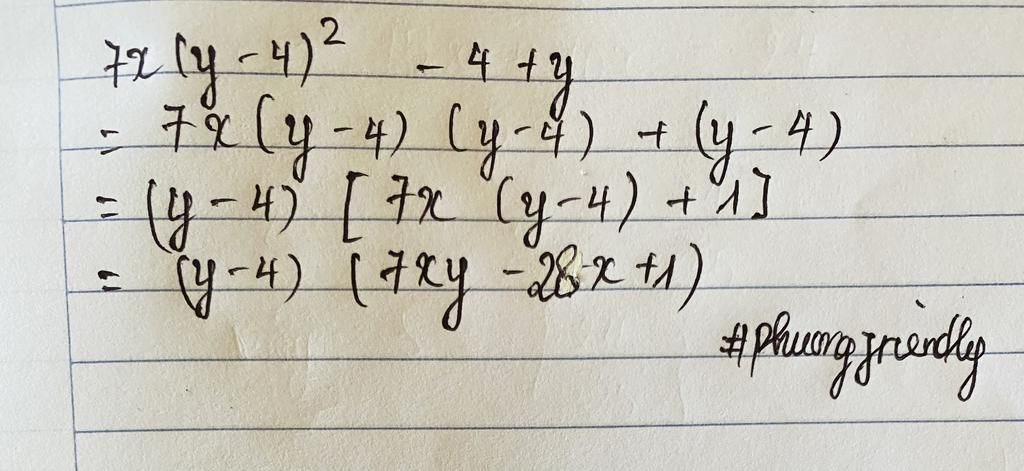 7x(y-4)² - 4 + y
= 7x(y-4) (y-4) + (y-4)
= (y-4) [7x (y-4) + 1]
= (y-4) (7xy - 28x + 1)
#phuongfriendly